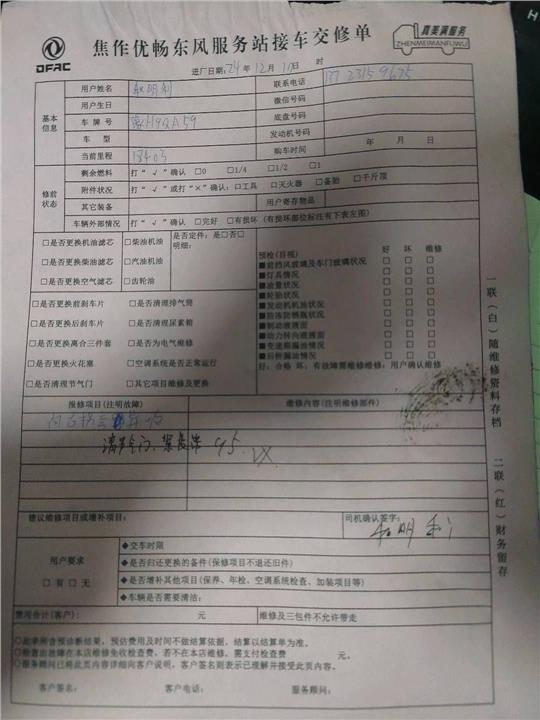 DFAC
焦作优畅东风服务站接车交修单
真美满服务
ZHENMEIMANFUWU
进厂日期: 24年 12月 10日 时
基本信息
用户姓名
联系电话
用户生日 微信号码
车牌号 豫H9QA59 底盘号码
车型 发动机号码
当前里程 18403 购车时间 年 月 日
修前状态
剩余燃料 打“√”确认 □0 □1/4 □1/2 □1
附件状况 打“√”或打“×”确认: □工具 □灭火器 □备胎 □千斤顶
其它装备 用户寄存物品
车辆外部情况 打“√”确认 □完好 □有损坏 (有损坏部位标注有下表左图)
□是否更换机油滤芯 □柴油机油
□是否更换柴油滤芯 □汽油机油
□是否更换空气滤芯 □齿轮油
是否定件: 是□否□
明细:
□是否更换前刹车片 □是否清理排气筒
□是否更换后刹车片 □是否清理尿素箱
□是否更换离合三件套 □是否为电气维修
□是否更换火花塞 □空调系统是否正常运行
□是否清理节气门 □其它项目维修及更换
预检(目视) 好 坏 维修
■前挡风玻璃及车门玻璃状况 □ □ □
■灯具情况 □ □ □
■油量状况 □ □ □
■轮胎状况 □ □ □
■发动机机油状况 □ □ □
■防冻防锈瓶状况 □ □ □
■制动液液面 □ □ □
■动力转向液液面 □ □ □
■变速箱漏油情况 □ □ □
■后桥漏油情况 □ □ □
好: 合格 坏: 有故障需维修维修: 用户确认维修
报修项目(注明故障) 维修内容(注明维修部件)
95.
建议维修项目或增补项目: 司机确认签字:
用户要求
□有 □无
◆交车时限
◆是否归还更换的备件(保修项目不退还旧件)
◆是否增补其他项目(保养、年检、空调系统检查、加装项目等)
◆车辆是否需要清洁:
费用合计(客户): 元 维修及三包件不允许带走
○此单所含预诊断结果, 预估费用及时间不做结算依据, 结算以结算单为准。
○检查出故障在本店维修免收检查费, 若不在本店维修, 需支付检查费 元。
○服务顾问已将此页内容详细向客户说明, 客户签名则表示已理解并接受此页内容。
客户签名: 客户电话: 服务顾问:
一联(白)随维修资料存档
二联(红)财务留存